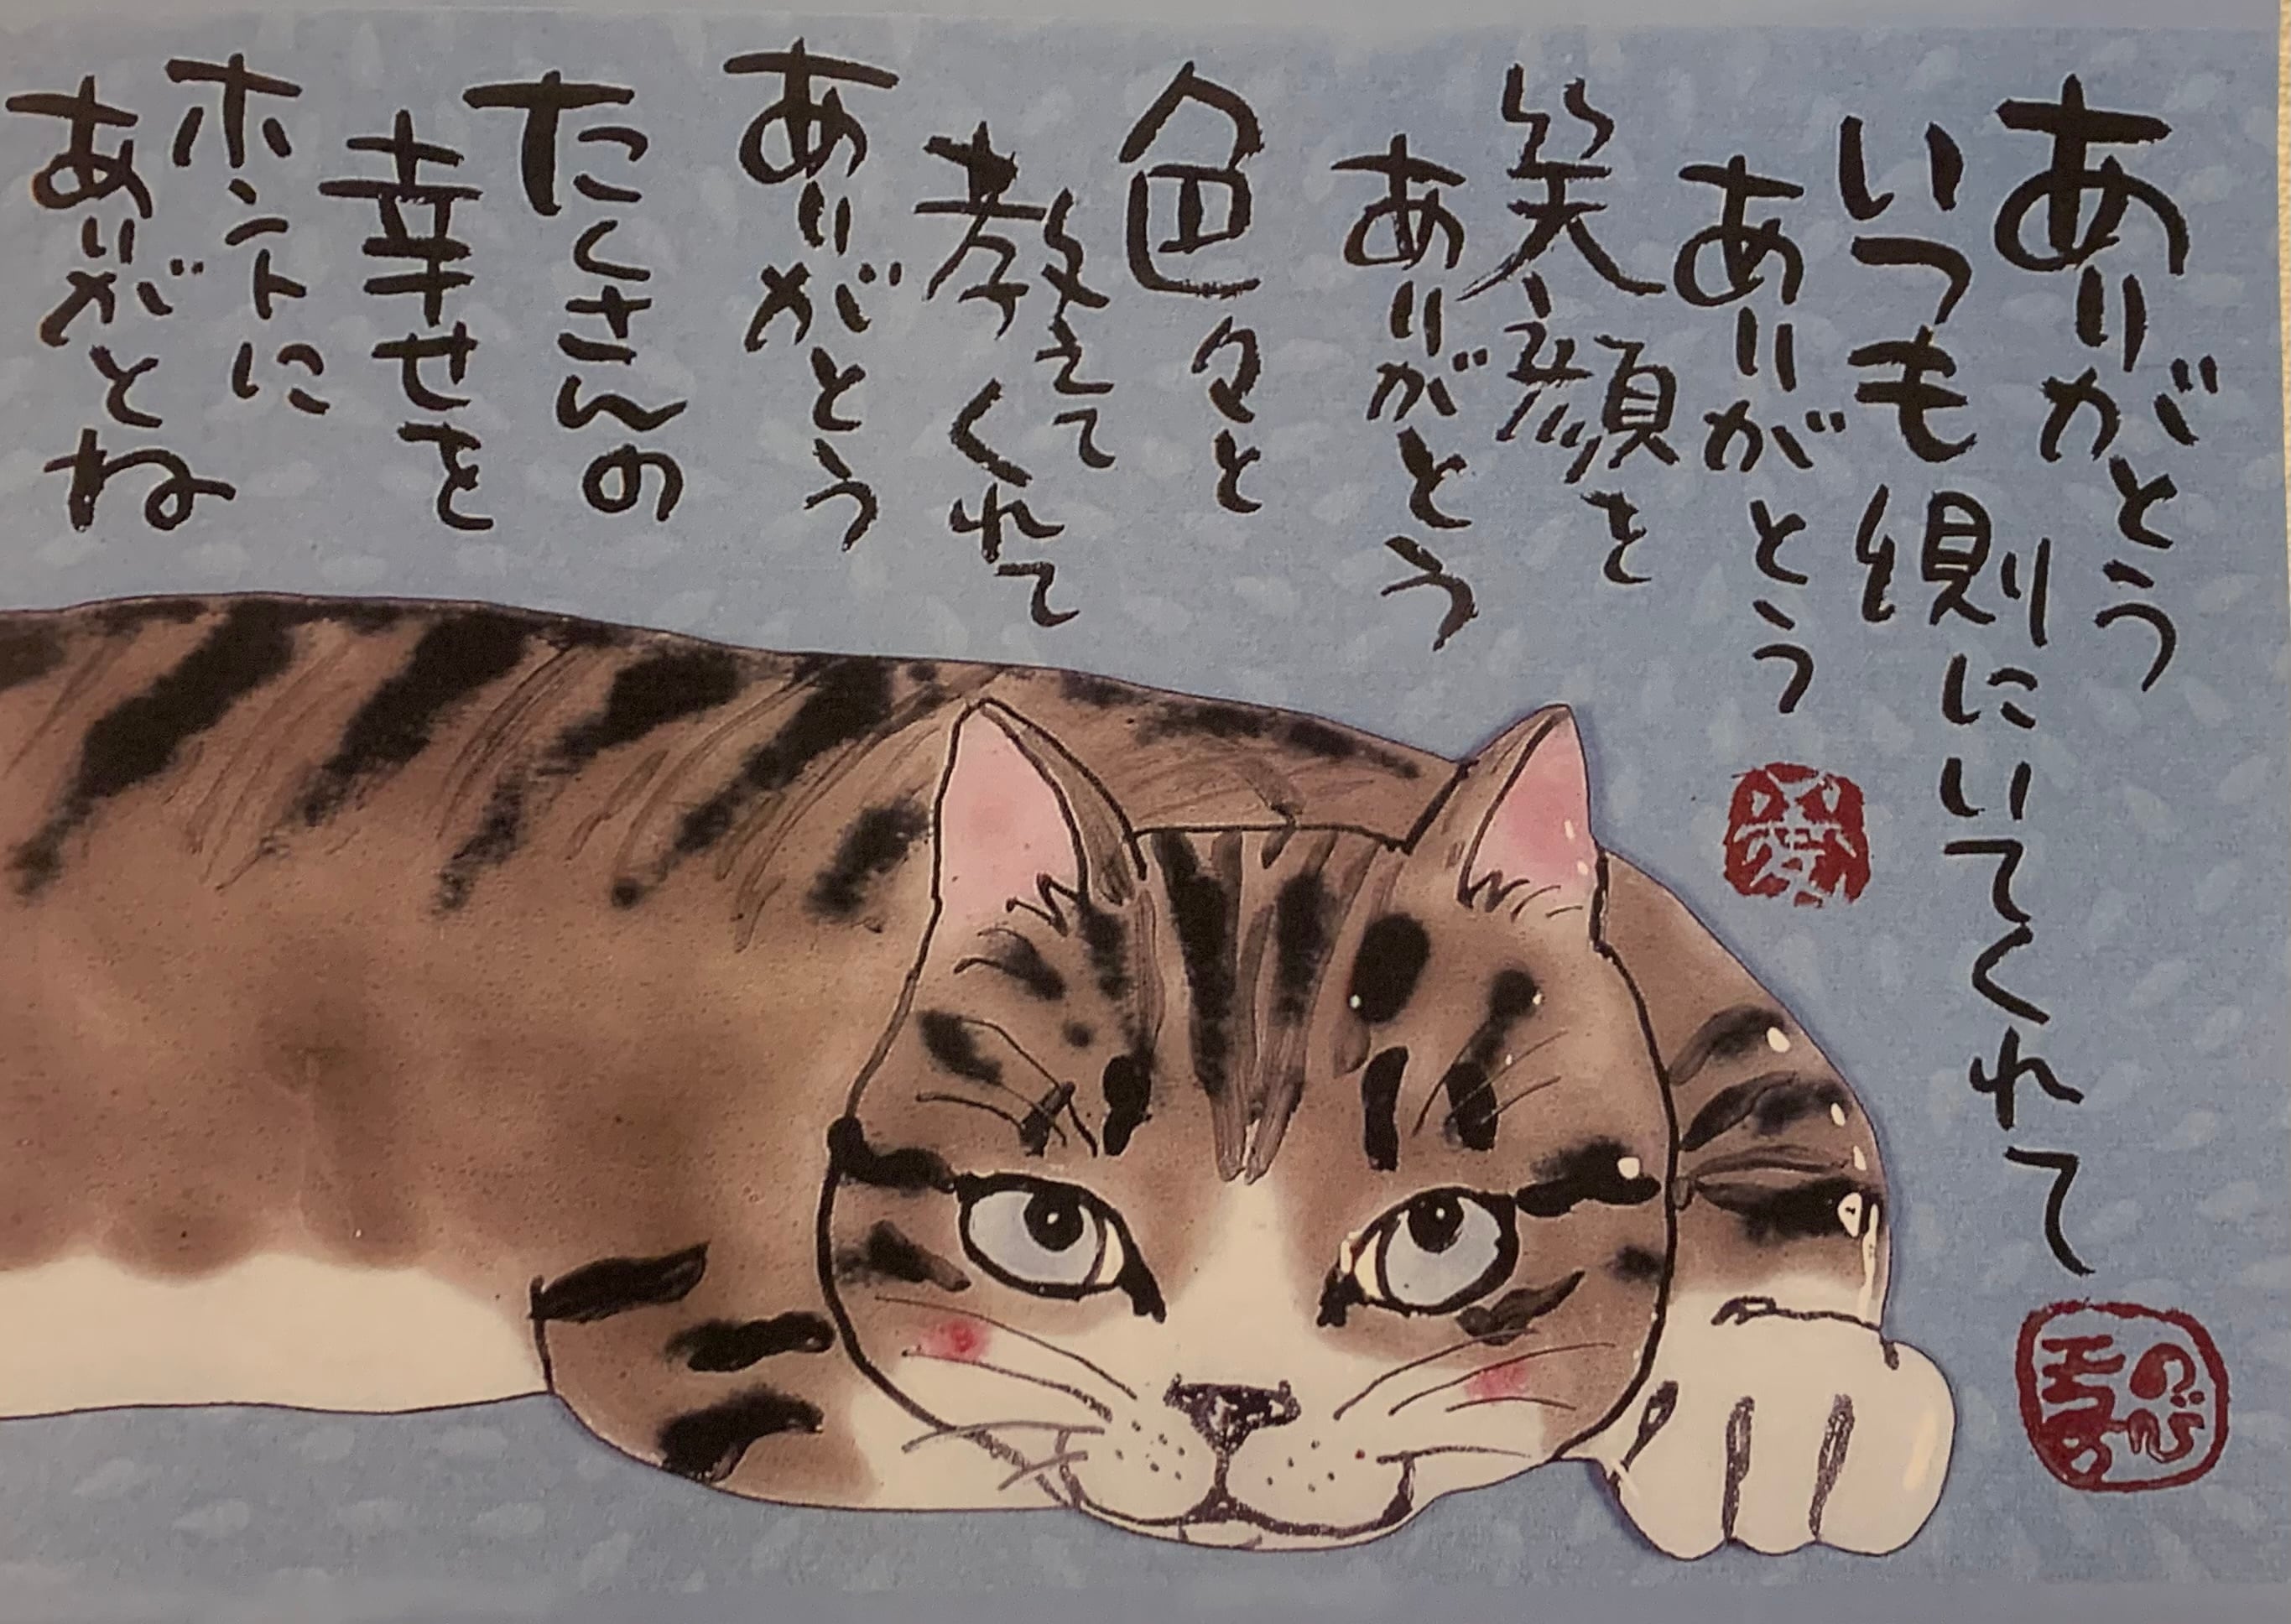 ありがとう
いつも側にいてくれて
ありがとう
笑顔を
ありがとう
色々と
教えてくれて
ありがとう
たくさんの
幸せを
ホントに
ありがとね
愛